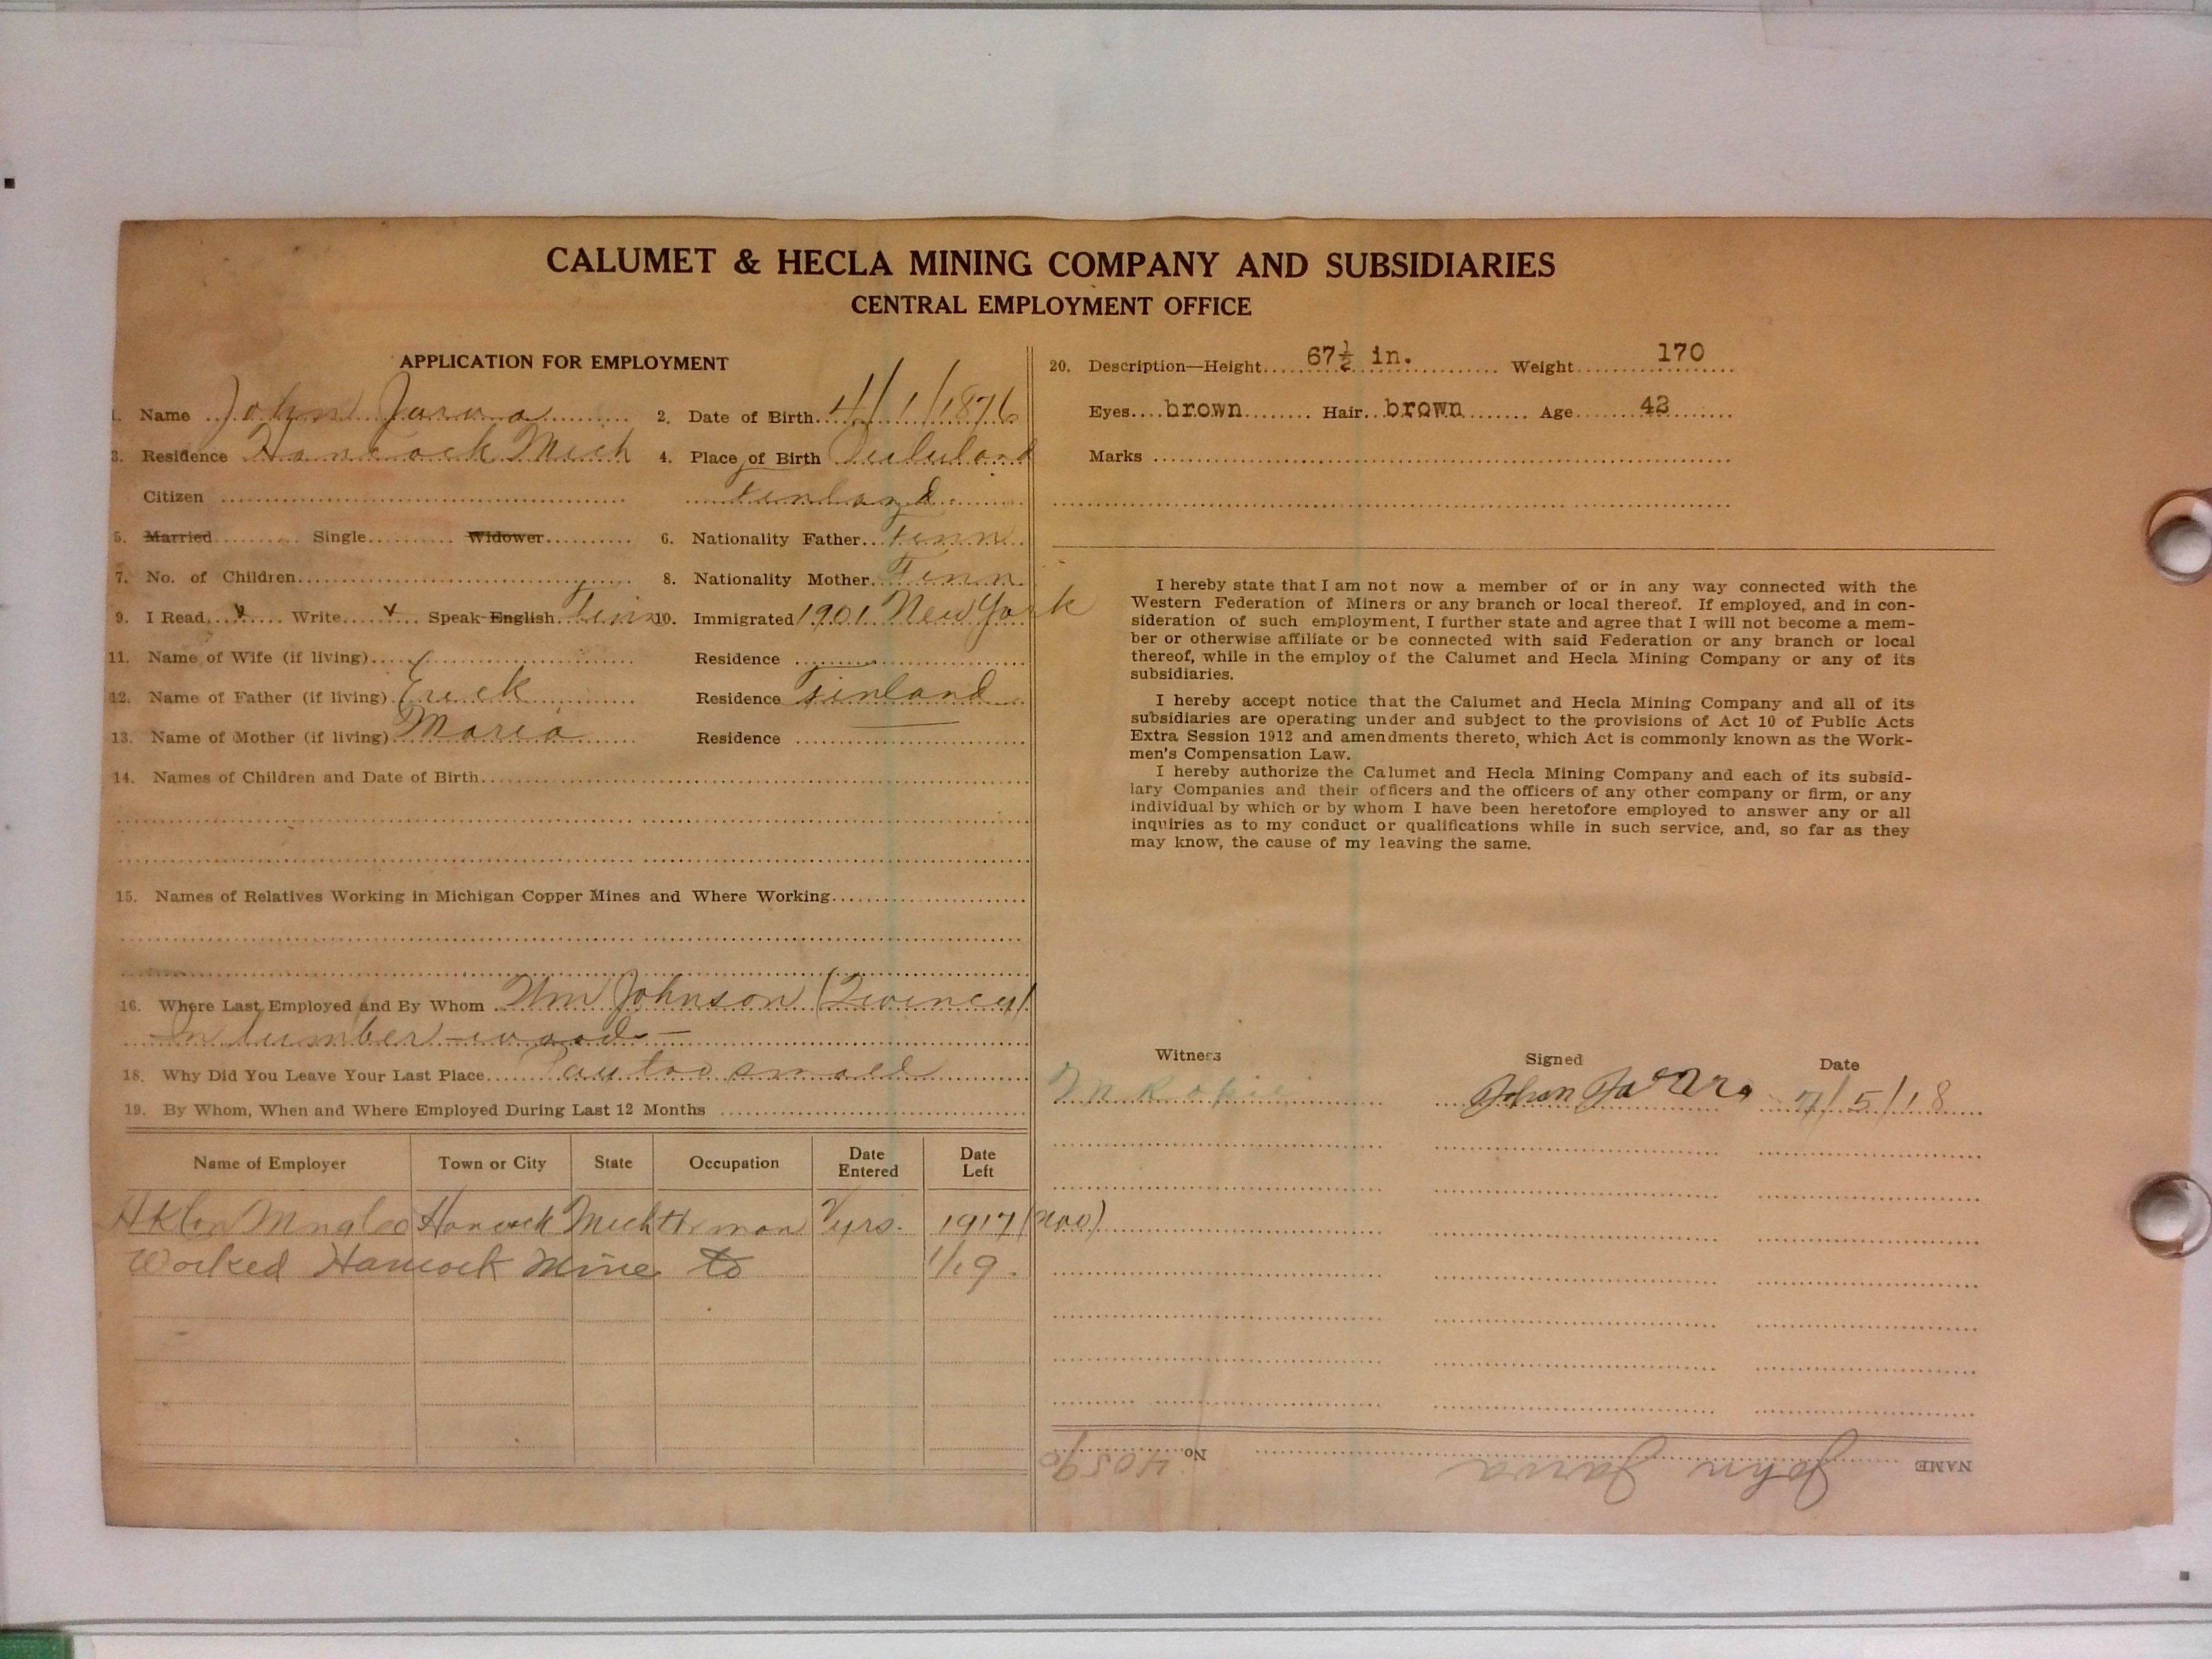 CALUMET & HECLA MINING COMPANY AND SUBSIDIARIES
CENTRAL EMPLOYMENT OFFICE
APPLICATION FOR EMPLOYMENT
1. Name John Jarva 2. Date of Birth 4/1/1876
3. Residence Hancock Mich 4. Place of Birth
Citizen Finland
5. Married Single Widower 6. Nationality Father Finn
7. No. of Children 8. Nationality Mother Finn
9. I Read v Write v Speak English Finn 10. Immigrated 1901 New York
11. Name of Wife (if living) Residence
12. Name of Father (if living) Erick Residence Finland
13. Name of Mother (if living) Maria Residence
14. Names of Children and Date of Birth
15. Names of Relatives Working in Michigan Copper Mines and Where Working
16. Where Last Employed and By Whom Wm Johnson (Quincey)
In lumber woods
18. Why Did You Leave Your Last Place Pay too small
19. By Whom, When and Where Employed During Last 12 Months
Name of Employer Town or City State Occupation Date Entered Date Left
Hancock Mich 1917 (nov)
Worked Hancock Mine to 1/19.
20. Description—Height 67½ in. Weight 170
Eyes brown Hair brown Age 42
Marks
I hereby state that I am not now a member of or in any way connected with the
Western Federation of Miners or any branch or local thereof. If employed, and in con-
sideration of such employment, I further state and agree that I will not become a mem-
ber or otherwise affiliate or be connected with said Federation or any branch or local
thereof, while in the employ of the Calumet and Hecla Mining Company or any of its
subsidiaries.
I hereby accept notice that the Calumet and Hecla Mining Company and all of its
subsidiaries are operating under and subject to the provisions of Act 10 of Public Acts
Extra Session 1912 and amendments thereto, which Act is commonly known as the Work-
men's Compensation Law.
I hereby authorize the Calumet and Hecla Mining Company and each of its subsid-
iary Companies and their officers and the officers of any other company or firm, or any
individual by which or by whom I have been heretofore employed to answer any or all
inquiries as to my conduct or qualifications while in such service, and, so far as they
may know, the cause of my leaving the same.
Witness Signed Date
John Jarva 7/5/18
NAME John Jarva No. 40590